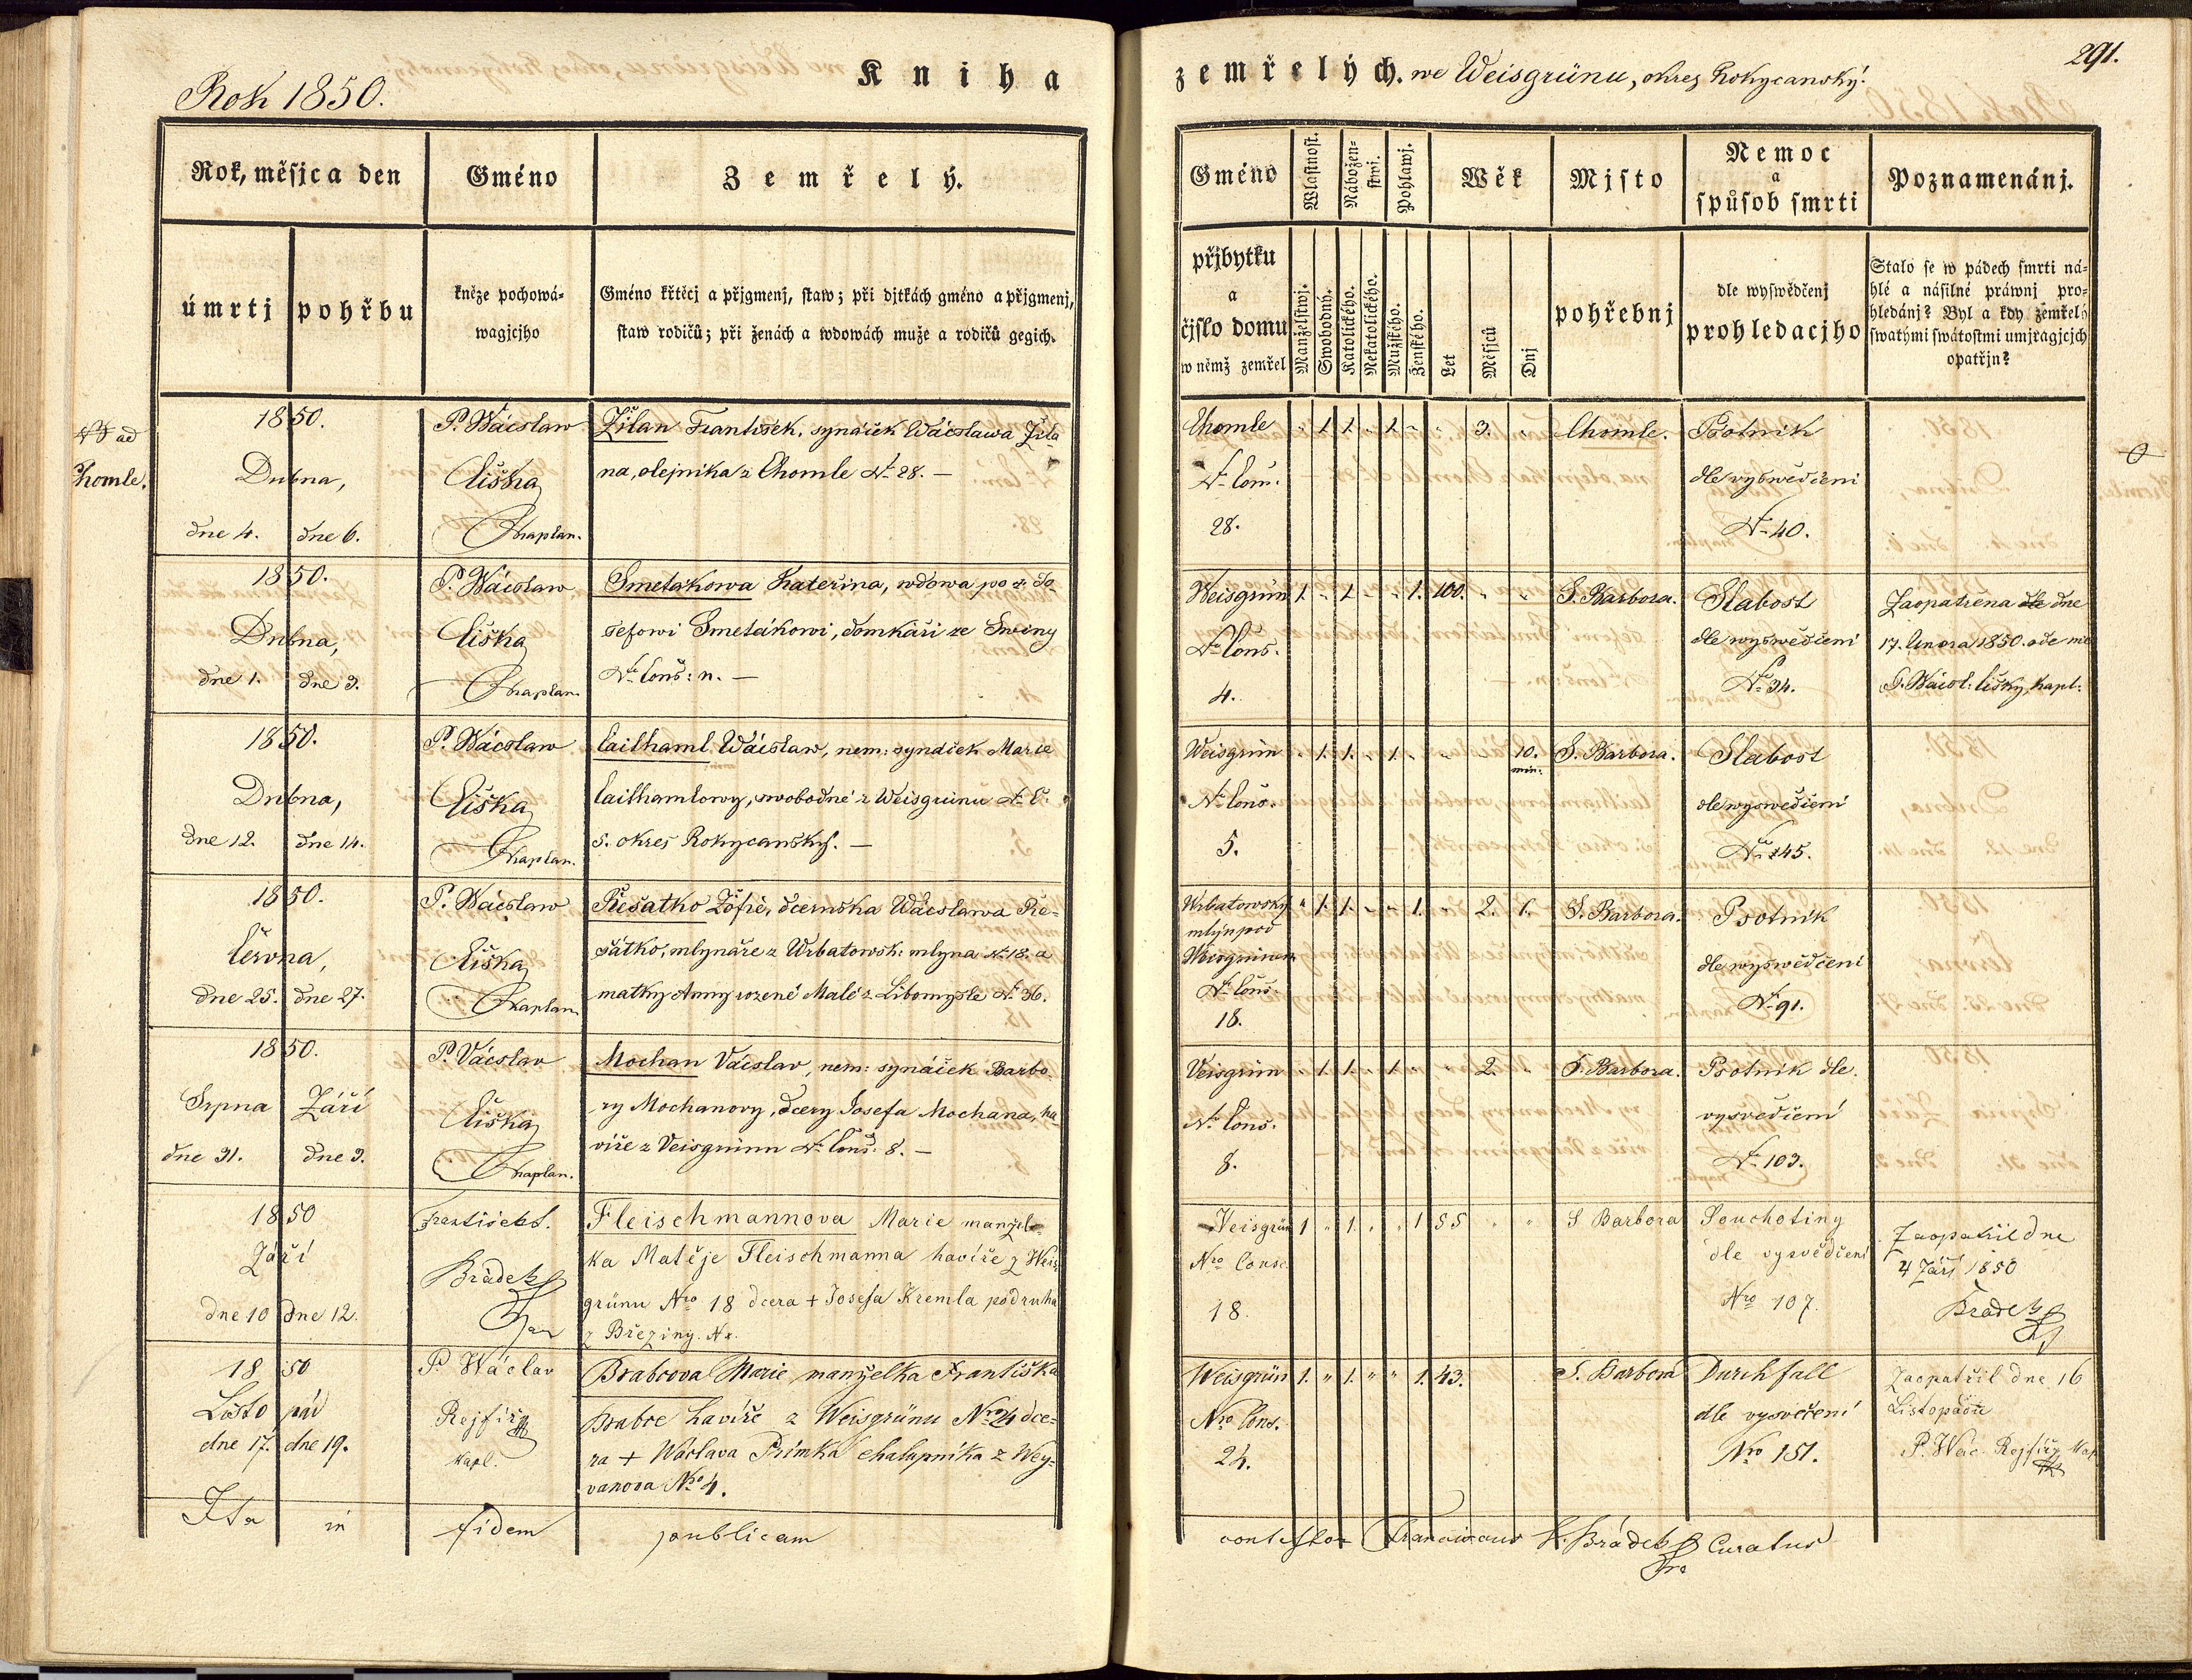 Rok 1850.
Kniha
zemřelých. we Weisgrünu, okres Rokycanský.
291.
Rok, měsjc a den
Gméno
Zemřelý.
úmrtj
pohřbu
kněze pochowá-
wagjcjho
Gméno křtěcj a přjgmenj, staw; při djtkách gméno a přjgmenj,
staw rodičů; při ženách a wdowách muže a rodičů gegich.
Gméno
Wlastnost.
Nábožen-
stwj.
Pohlawj.
Wěk
Mjsto
Nemoc
a
spůsob smrti
Poznamenánj.
přjbytku
a
čjslo domu
w němž zemřel
Manželstwj.
Swobodný.
Katolického.
Nekatolického.
Mužského.
Ženského.
Let
Měsjců
Dnj
pohřebnj
dle wyswědčenj
prohledacjho
Stalo se w pádech smrti ná-
hlé a násilné práwnj pro-
hledánj? Byl a kdy zemřelý
swatými swátostmi umjragjcjch
opatřjn?
NB ad
Chomle.
1850.
Dubna,
dne 4. dne 6.
P. Wácslaw
Čiška
Kaplan.
Žilan František, synáček Wácslawa Žila
na, olejníka z Chomle N. 28. —
Chomle
N. Cons.
28.
" 1. 1. " 1. " " 3. "
Chomle.
Psotník
dle wyswědčení
N. 40.
1850.
Dubna,
dne 1. dne 3.
P. Wácslaw
Čiška
Kaplan.
Smetakowa Kateřina, wdowa po † Jo-
sefowi Smetákowi, domkáři ze Swiny
N. Cons: n. —
Weisgrün
N. Cons.
4.
1. " 1. " " 1. 100. " "
S. Barbora.
Slabost
dle wyswědčení
N. 34.
Zaopatřena dle dne
17. Února 1850. ode mě
P. Wácsl: Čišky, kapl:
1850.
Dubna,
dne 12. dne 14.
P. Wácslaw
Čiška
Kaplan.
Cailhaml Wácslaw, nem: synáček Marie
Cailhamlowy, swobodné z Weisgrünu N. C.
5. okres Rokycanský. —
Weisgrün
N. Cons.
5.
" 1. 1. " 1. " " " 10.
min:
S. Barbora.
Slabost
dle wyswědčení
N. 145.
1850.
Června,
dne 25. dne 27.
P. Wácslaw
Čiška
Kaplan
Řešatko Žofie, dceruška Wácslawa Ře-
šátko, mlynáře z Wrbatowsk: mlyna N. 18. a
matky Anny rozené Malé z Libomyšle N. 36.
Wrbatowský
mlýn pod
Weisgrünem
N. Cons.
18.
" 1. 1. " " 1. " 2. 1.
S. Barbora.
Psotník
dle wyswědčení
N. 91.
1850.
Srpna Září
dne 31. dne 3.
P. Vácslav
Čiška
Kaplan.
Mochan Vácslav, nem: synáček Barbo-
ry Mochanovy, dcery Josefa Mochana, ha
víře z Veisgrünu N. Cons. 8. —
Veisgrün
N. Cons.
8.
" 1. 1. " 1. " " 2. "
S. Barbora.
Psotník dle
vysvědčení
N. 103.
1850
Září
dne 10 dne 12.
František S.
Brádek
Fleischmannova Marie manžel-
ka Matěje Fleischmanna havíře z Weis
grünu Nro 18 dcera + Josefa Kremla podruha
z Březiny. Nr.
Weisgrün
Nro Consc.
18.
1 " 1. " " 1 55 " "
S Barbora
Souchotiny
dle vysvědčení
Nro 107.
Zaopatřil dne
4 Září 1850
Brádek
1850
Listopád
dne 17. dne 19.
P. Wáclav
Rejfíř
Kapl.
Brabcova Marie manželka Františka
Brabce havíře z Weisgrünu Nro 24 dce-
ra + Wáclava Přimka chalupníka z Wey-
vanova Nro 4.
Weisgrün
Nro Cons.
24.
1. " 1. " " 1. 43.
S. Barbora
Durchfall
dle vysvečení
Nro 151.
Zaopatřil dne 16
Listopadu
P. Wác. Rejfíř Kap
Ita in fidem publicam
contestor Franciscus S. Brádek Curatus